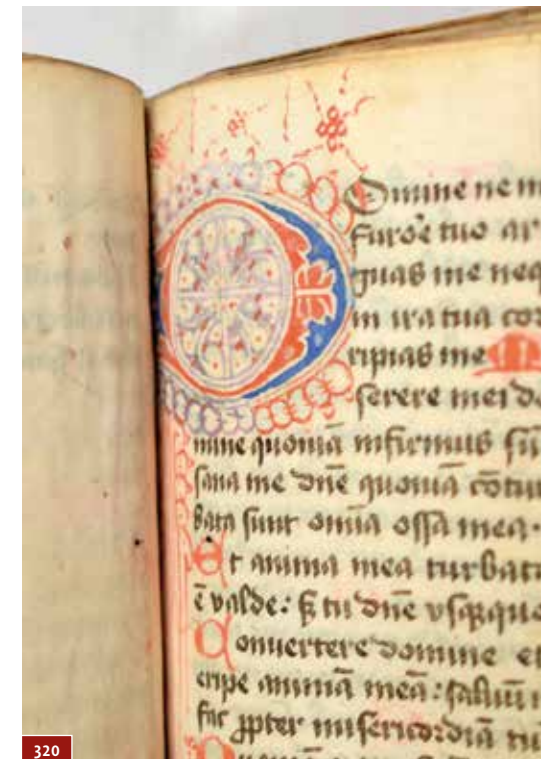 Domine ne in
furore tuo ar
guas me neq
in ira tua cor
ripias me M
serere mei do
mine quoniā infirmus sū
sana me dn̄e quoniā cōtur
bata sunt om̄ia ossa mea·
Et anima mea turbata
ē valde: s; tu dn̄e vsq;quo
Conuertere domine et
eripe animā meā: saluū
fac ꝓpter misericordiā tuā
320